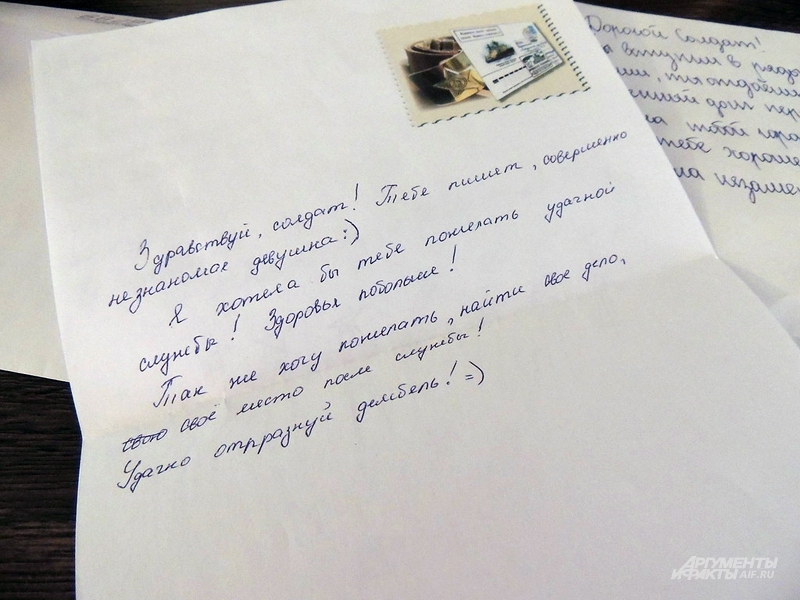 Здравствуй, солдат! Тебе пишет, совершенно
незнакомая девушка:)
Я хотела бы тебе пожелать удачной
службы! Здоровья побольше!
Так же хочу пожелать, найти свое дело,
свою своё место после службы!
Удачно отпразднуй дембель! =)
Дорогой Солдат!
вступил в ряды
ты отдаёшь
долг
твой
тебе хороше
на
АРГУМЕНТЫ
И ФАКТЫ AIF.RU